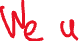 We u